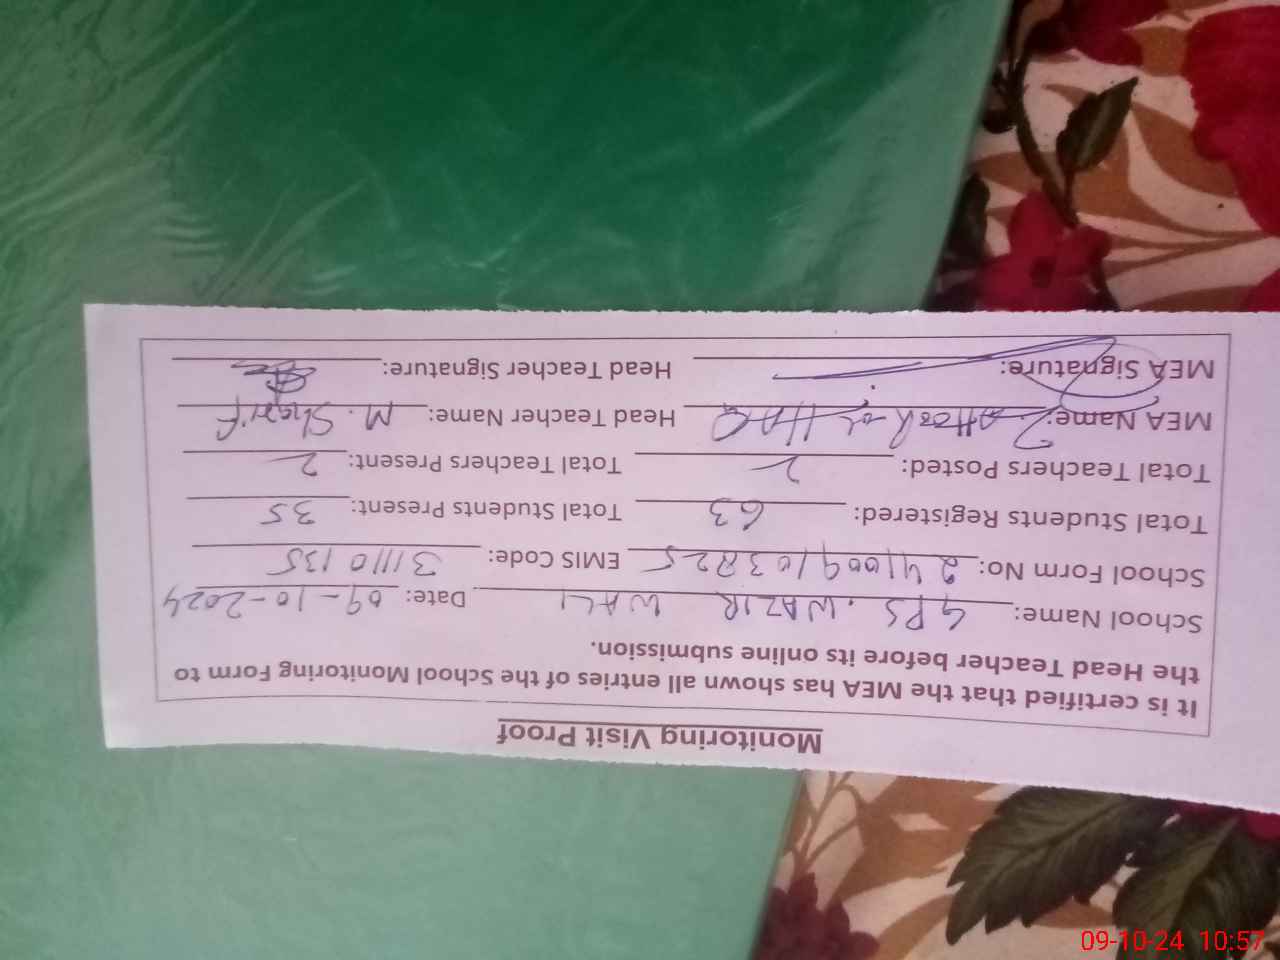 Monitoring Visit Proof
It is certified that the MEA has shown all entries of the School Monitoring Form to
the Head Teacher before its online submission.
School Name: GPS. WAZIR WALI Date: 09-10-2024
School Form No: EMIS Code: 31110135
Total Students Registered: 63 Total Students Present: 35
Total Teachers Posted: 2 Total Teachers Present: 2
MEA Name: HAQ Head Teacher Name: M. Sharif
MEA Signature: Head Teacher Signature:
09-10-24 10:57